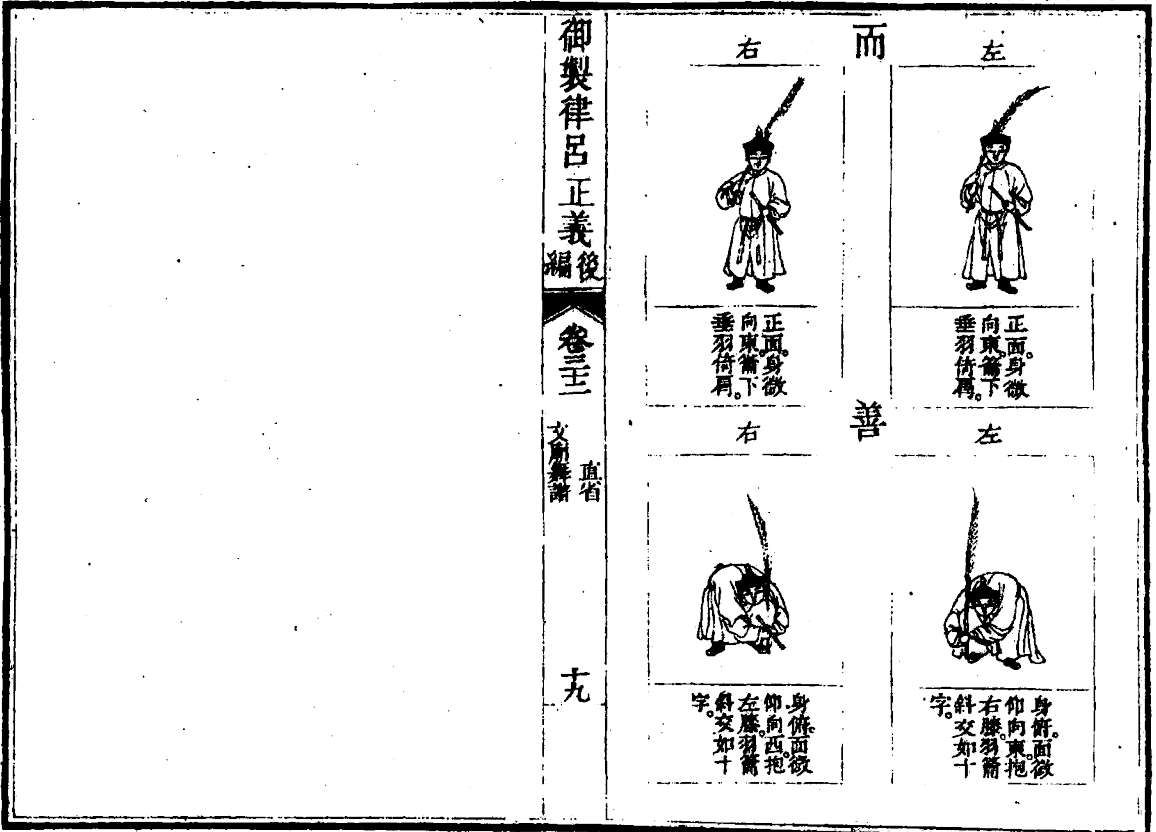 而
左
正面。身微
向東。籥下
垂羽倚肩。
右
正面。身微
向東。籥下
垂羽倚肩。
善
左
身俯。面微
仰向東。抱
右膝。羽籥
斜交如十
字。
右
身俯。面微
仰向西。抱
左膝。羽籥
斜交如十
字。
御製律呂正義後編
卷三十二
直省
文廟舞譜
十九